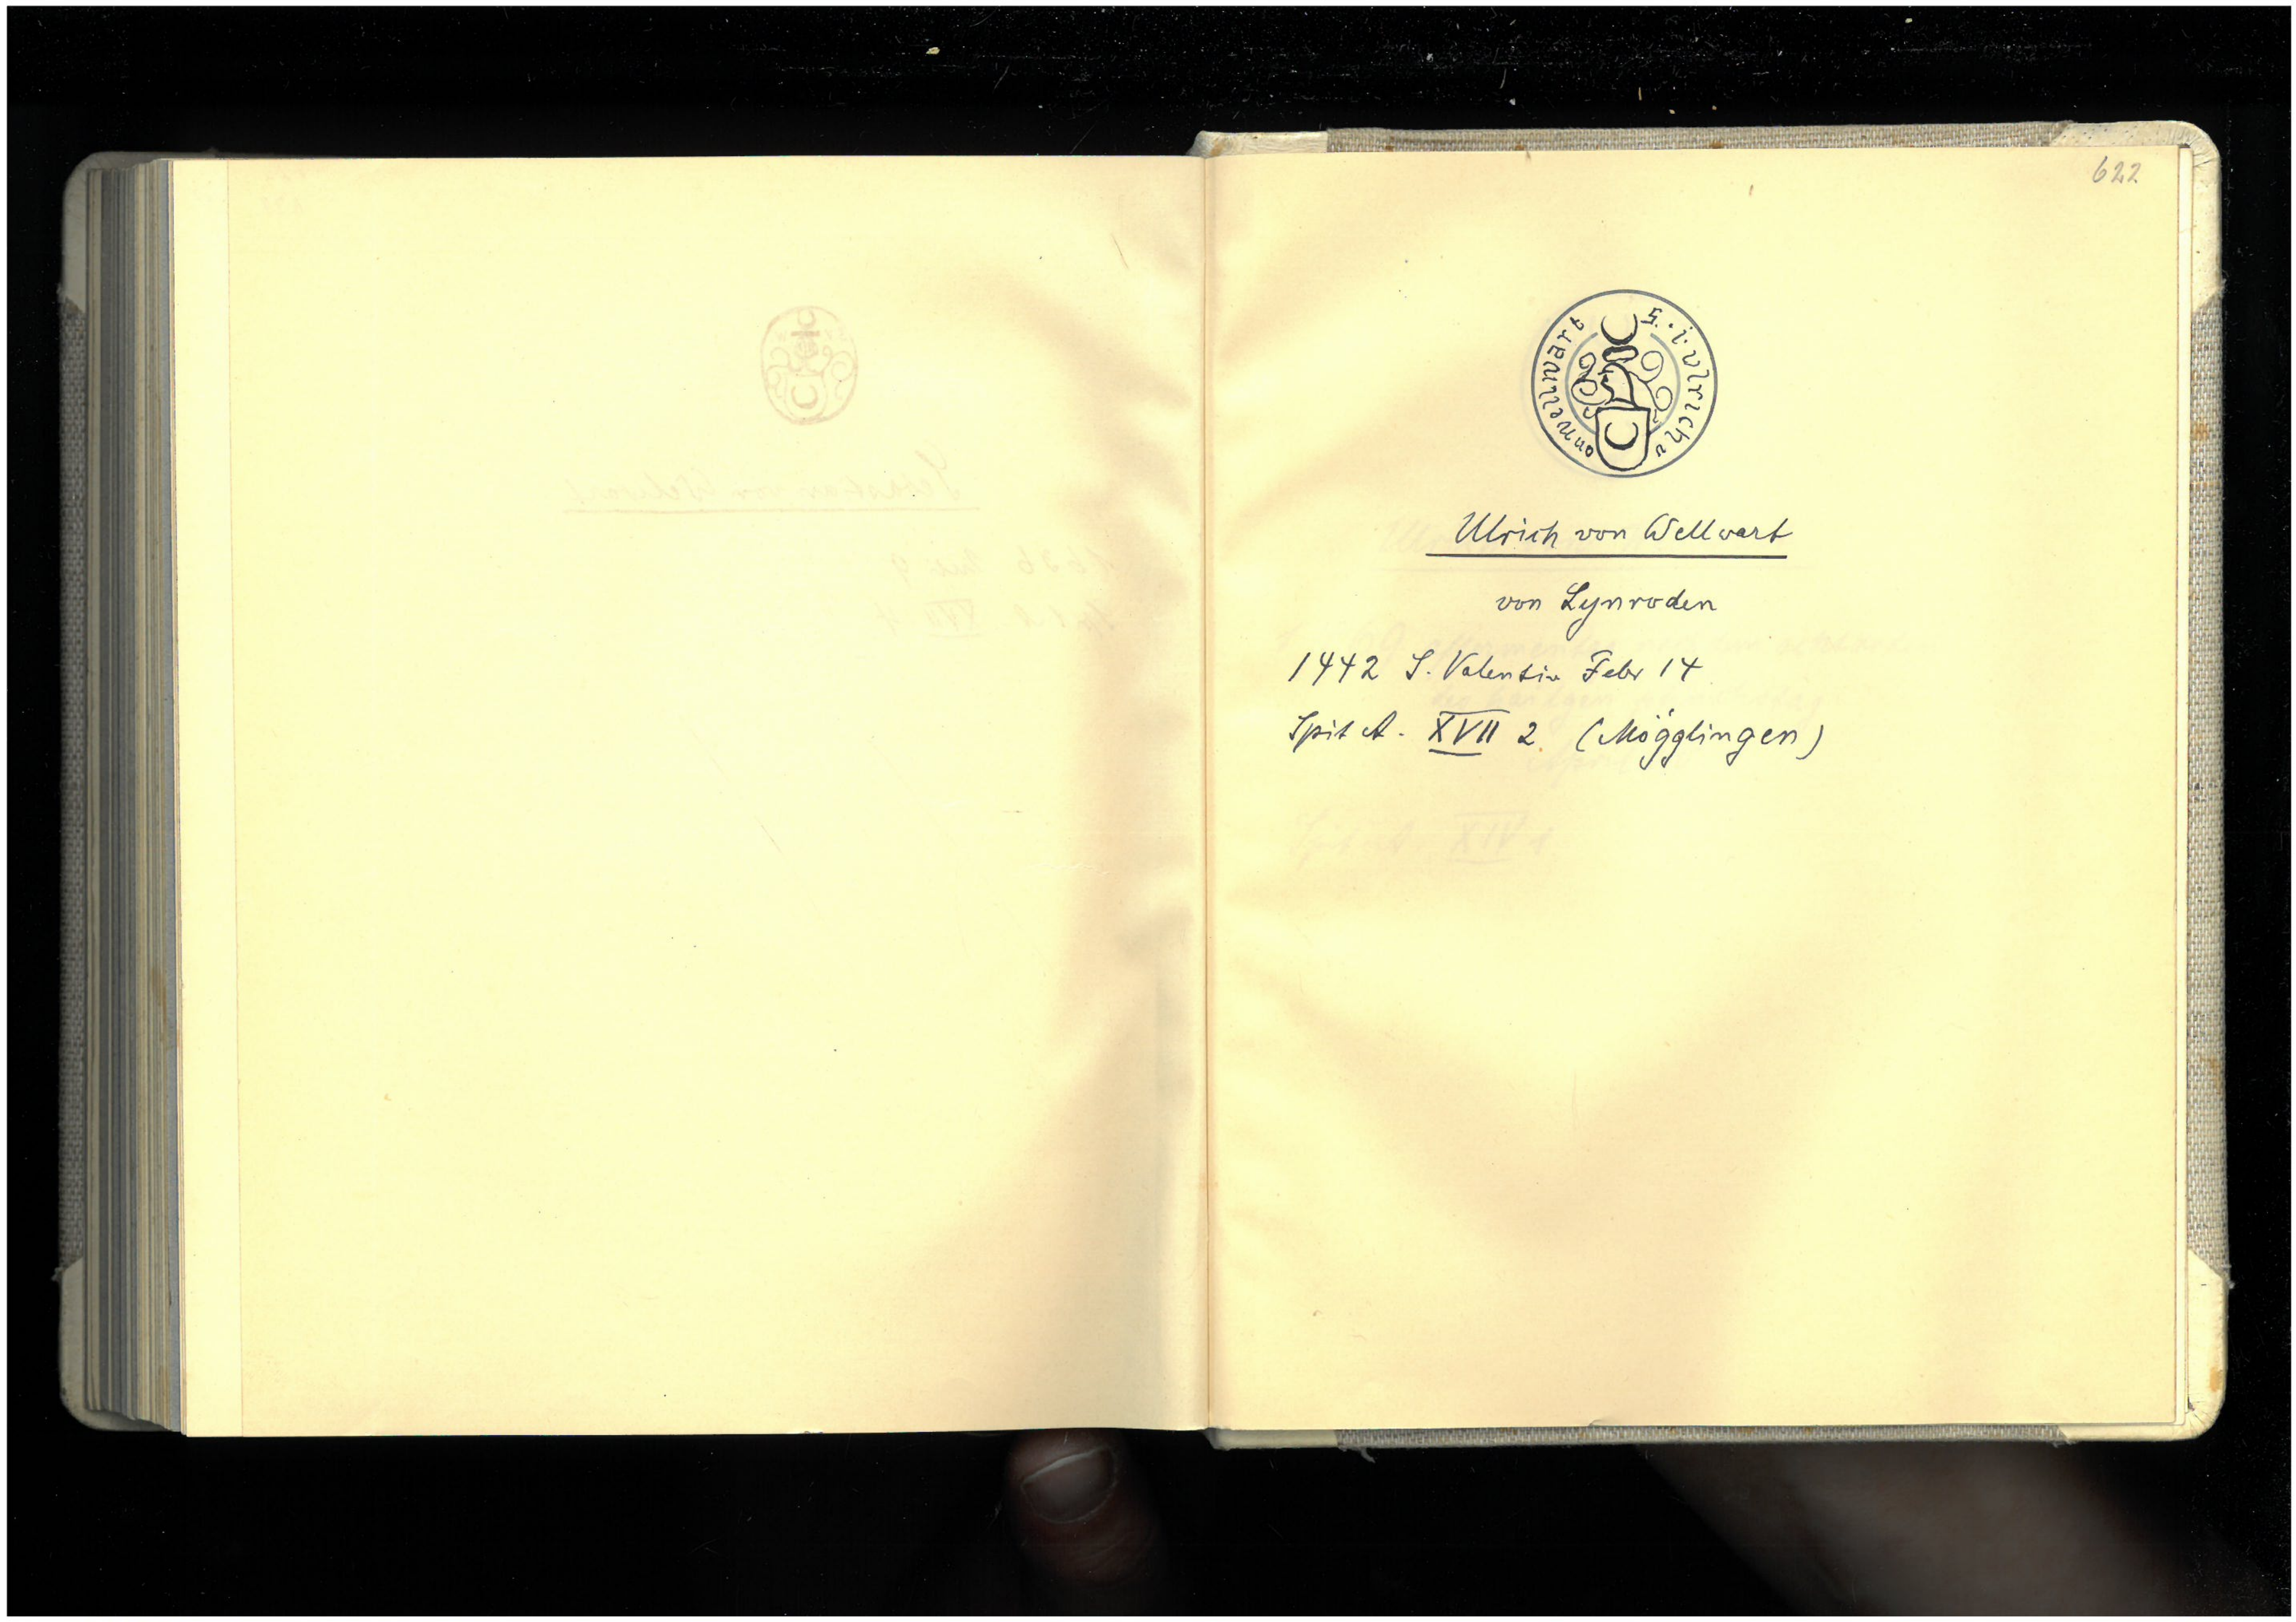 622
S. i. vlrich v
on wellwart
Ulrich von Wellwart
von Lynroden
1442 S. Valentin Febr 14
Spit A. XVII 2 (Mögglingen)